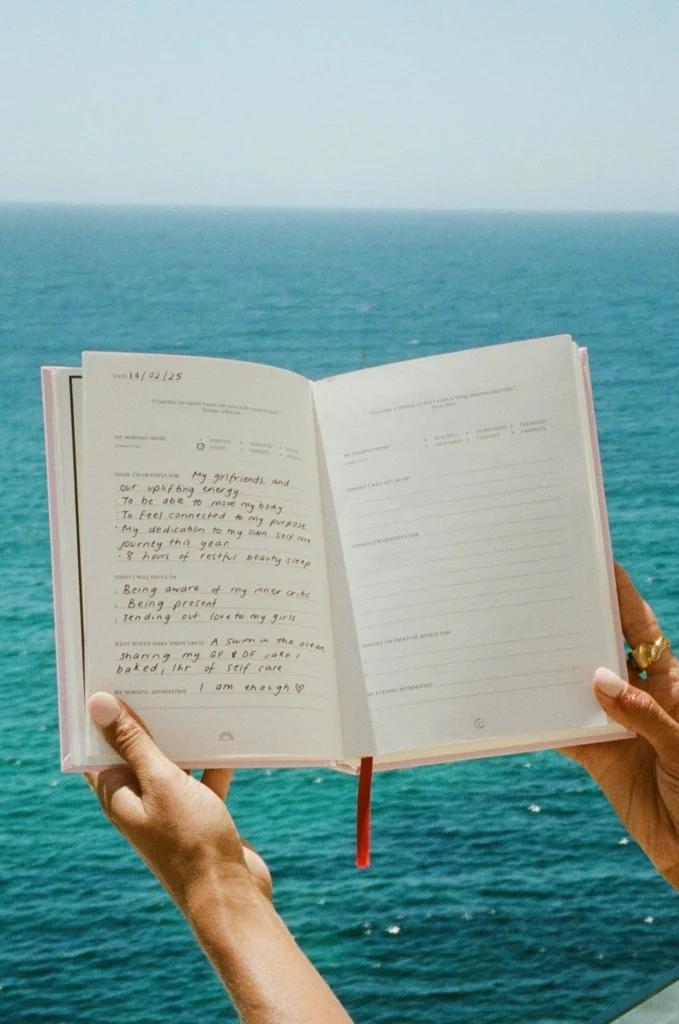 DATE 14/02/25
MY MORNING MOOD
TODAY I'M GRATEFUL FOR My girlfriends, and
our uplifting energy
· To be able to move my body
· To feel connected to my purpose
· My dedication to my own self love
journey this year
· 8 hours of restful beauty sleep
TODAY I WILL FOCUS ON
1. Being aware of my inner critic
2. Being present
3. sending out love to my girls
WHAT WOULD MAKE TODAY GREAT A swim in the ocean
sharing my GF & DF cake i
baked, 1hr of self care
MY MORNING AFFIRMATION I am enough ♡
MY EVENING MOOD
TONIGHT I WILL LET GO OF
TONIGHT I'M GRATEFUL FOR
TONIGHT I'M PROUD OF MYSELF FOR
MY EVENING AFFIRMATION